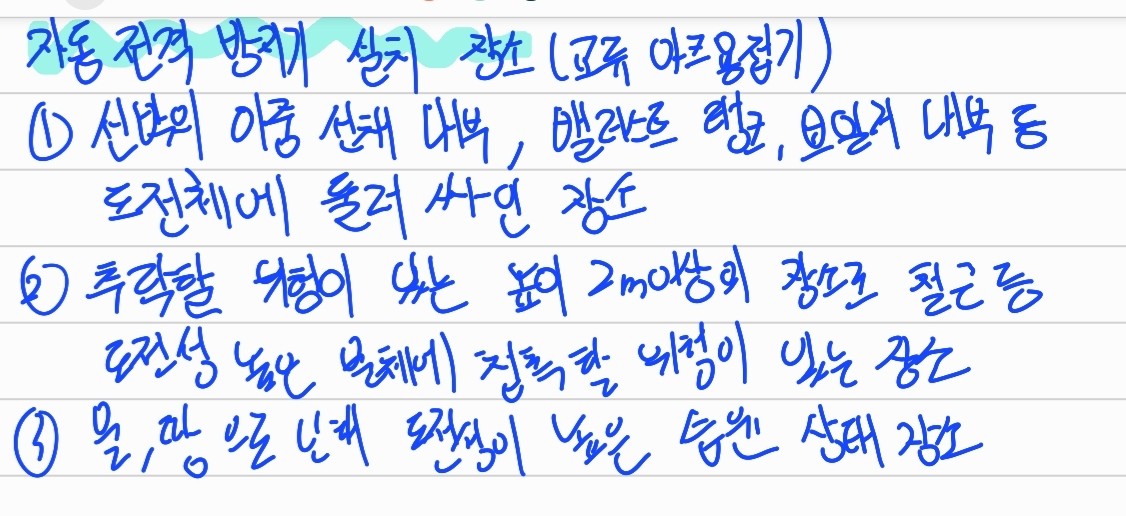 자동 전격 방지기 설치 장소 (교류 아크용접기)
① 선박의 이중 선체 내부, 밸러스트 탱크, 보일러 내부 등
도전체에 둘러 싸인 장소
② 추락할 위험이 있는 높이 2m이상의 장소로 철근 등
도전성 높은 물체에 접촉할 위험이 있는 장소
③ 물, 땀 으로 인해 도전성이 높은 습윤 상태 장소